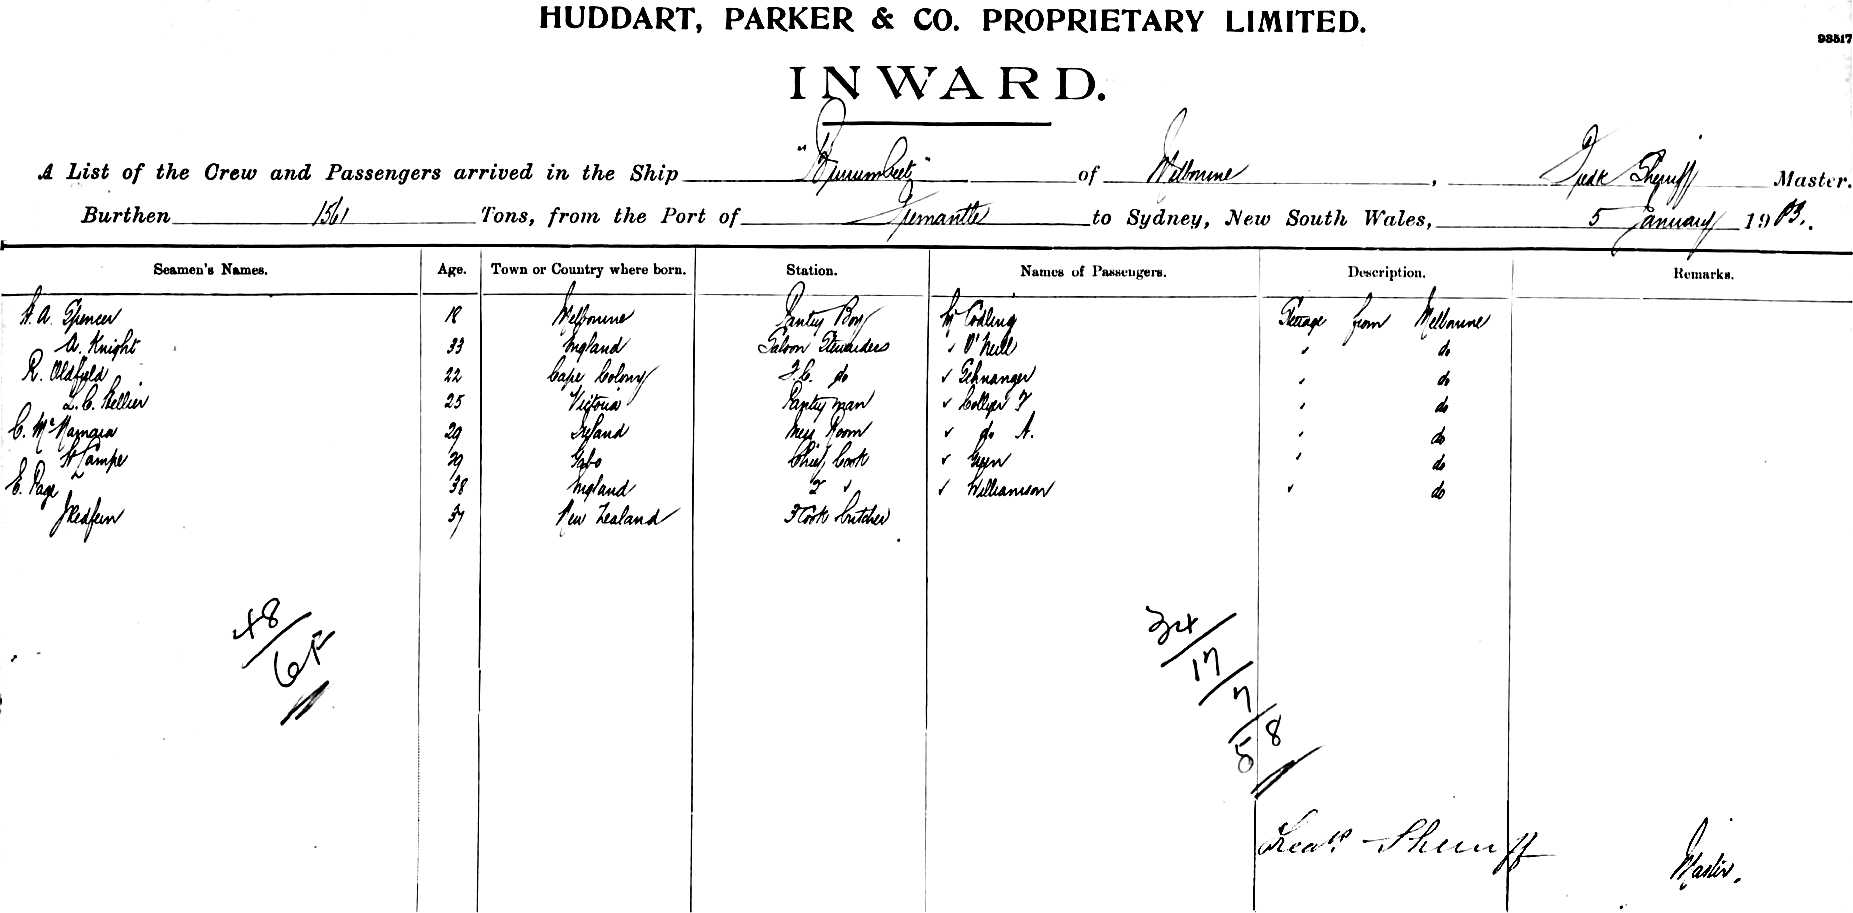 HUDDART, PARKER & CO. PROPRIETARY LIMITED.
93517
INWARD.
A List of the Crew and Passengers arrived in the Ship "Burrumbeet" of Melbourne, Fredk Sherriff Master.
Burthen 1561 Tons, from the Port of Fremantle to Sydney, New South Wales, 5 January 1903.
Seamen's Names. Age. Town or Country where born. Station. Names of Passengers. Description. Remarks.
H. A. Spencer 18 Melbourne Pantry Boy Mr Codling Steerage from Melbourne
A. Knight 33 England Saloon Stewardess " O'Neill " do
R. Oldfield 22 Cape Colony F.C. do " " do
L. C. Hellier 25 Victoria Pantry man " Collyer F " do
C. McNamara 29 Ireland Mess Room " do A. " do
H Lampe 39 Chief Cook " Green " do
E. Page 38 England 2 " " Williamson " do
J Redfern 37 New Zealand 3 Cook butcher
48
34
6
17
7
8
5
Fredk Sherriff
Master.